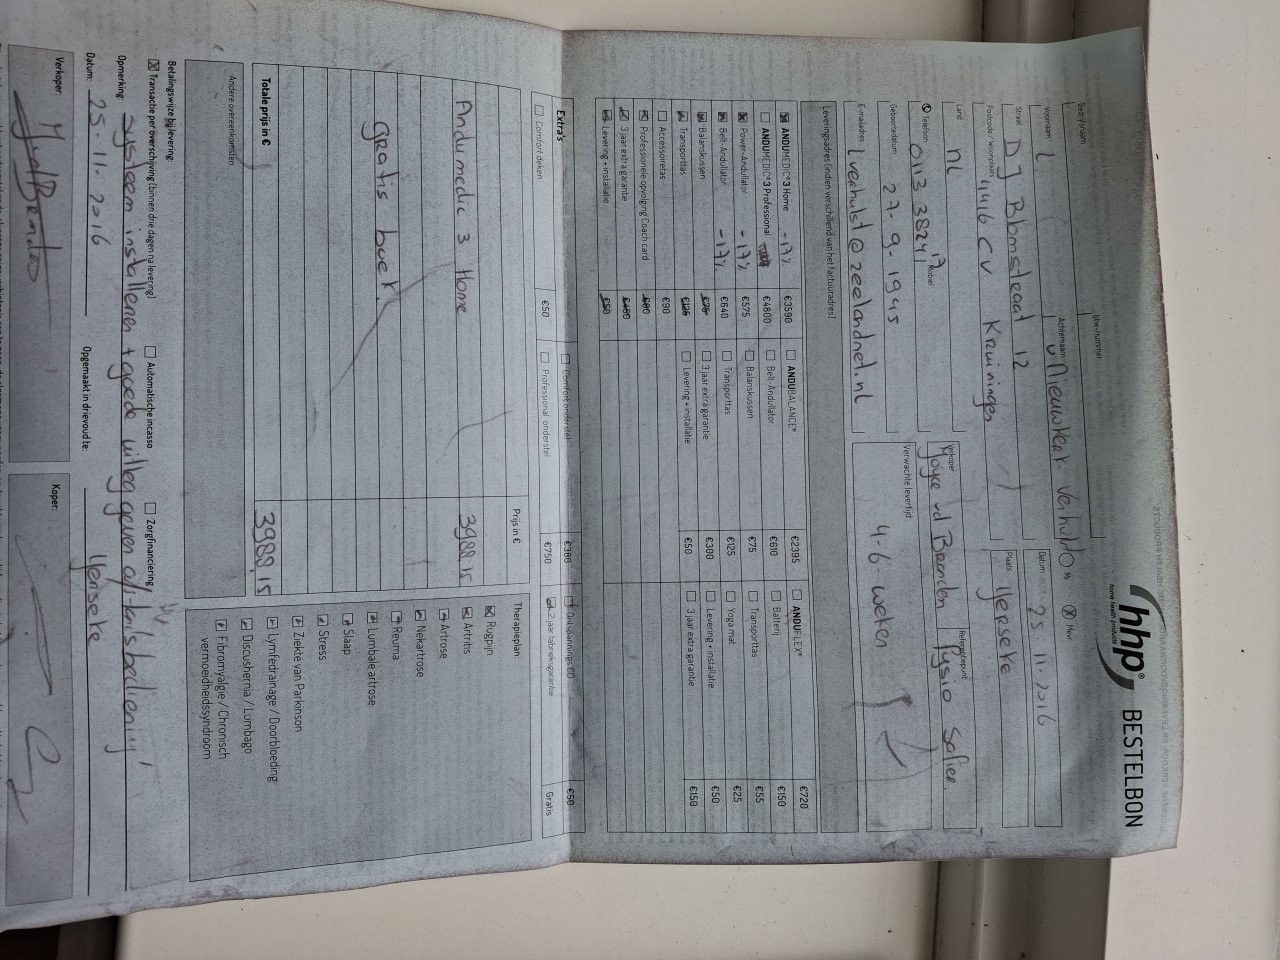 hhp® BESTELBON
home health products
Bedrijfsnaam
btw-nummer
Mr. Mevr.
Datum 25 11. 2016
Voornaam
Achternaam
Straat D J 12
Plaats Yerseke
Postcode / Woonplaats 4416 CV Kruiningen
Land NL
Verkoper
Referentiepunt Fysio
Telefoon 0113 38241
Mobiel
Geboortedatum 27-9-1945
Verwachte levertijd 4-6 weken
E-mailadres iverhulst@zeelandnet.nl
Leveringsadres (indien verschillend van het factuuradres)
ANDUMEDIC® 3 Home -17% €3590
ANDUMEDIC® 3 Professional €4800
Power-Andulator -17% €575
Belt-Andulator -17% €640
Balanskussen €75
Transporttas €125
Accessoiretas €90
Professionele opvolging Coach card
3 jaar extra garantie €450
Levering + installatie €50
ANDUBALANCE® €2395
Belt-Andulator €610
Balanskussen €75
Transporttas €125
3 jaar extra garantie €300
Levering + installatie €50
ANDUFLEX® €720
Batterij €150
Transporttas €55
Yoga mat €25
Levering + installatie €50
3 jaar extra garantie €150
Extra's
Comfort onderstel €380
Ontspannings CD €50
Comfort deken €50
Professional onderstel €750
2 jaar fabrieksgarantie Gratis
Prijs in €
Andumedic 3 Home 3988,15
gratis boek
Totale prijs in € 3988,15
Therapieplan:
Rugpijn
Artritis
Artrose
Nekartrose
Reuma
Lumbale artrose
Slaap
Stress
Ziekte van Parkinson
Lymfedrainage / Doorbloeding
Discushernia / Lumbago
Fibromyalgie / Chronisch
vermoeidheidssyndroom
Andere overeenkomsten
Betalingswijze bij levering:
Transactie per overschrijving (binnen drie dagen na levering)
Automatische incasso
Zorgfinanciering
Opmerking: systeem installeren + goede uitleg geven
Datum: 25.11.2016
Opgemaakt in drievoud te: Yerseke
Verkoper:
Koper: